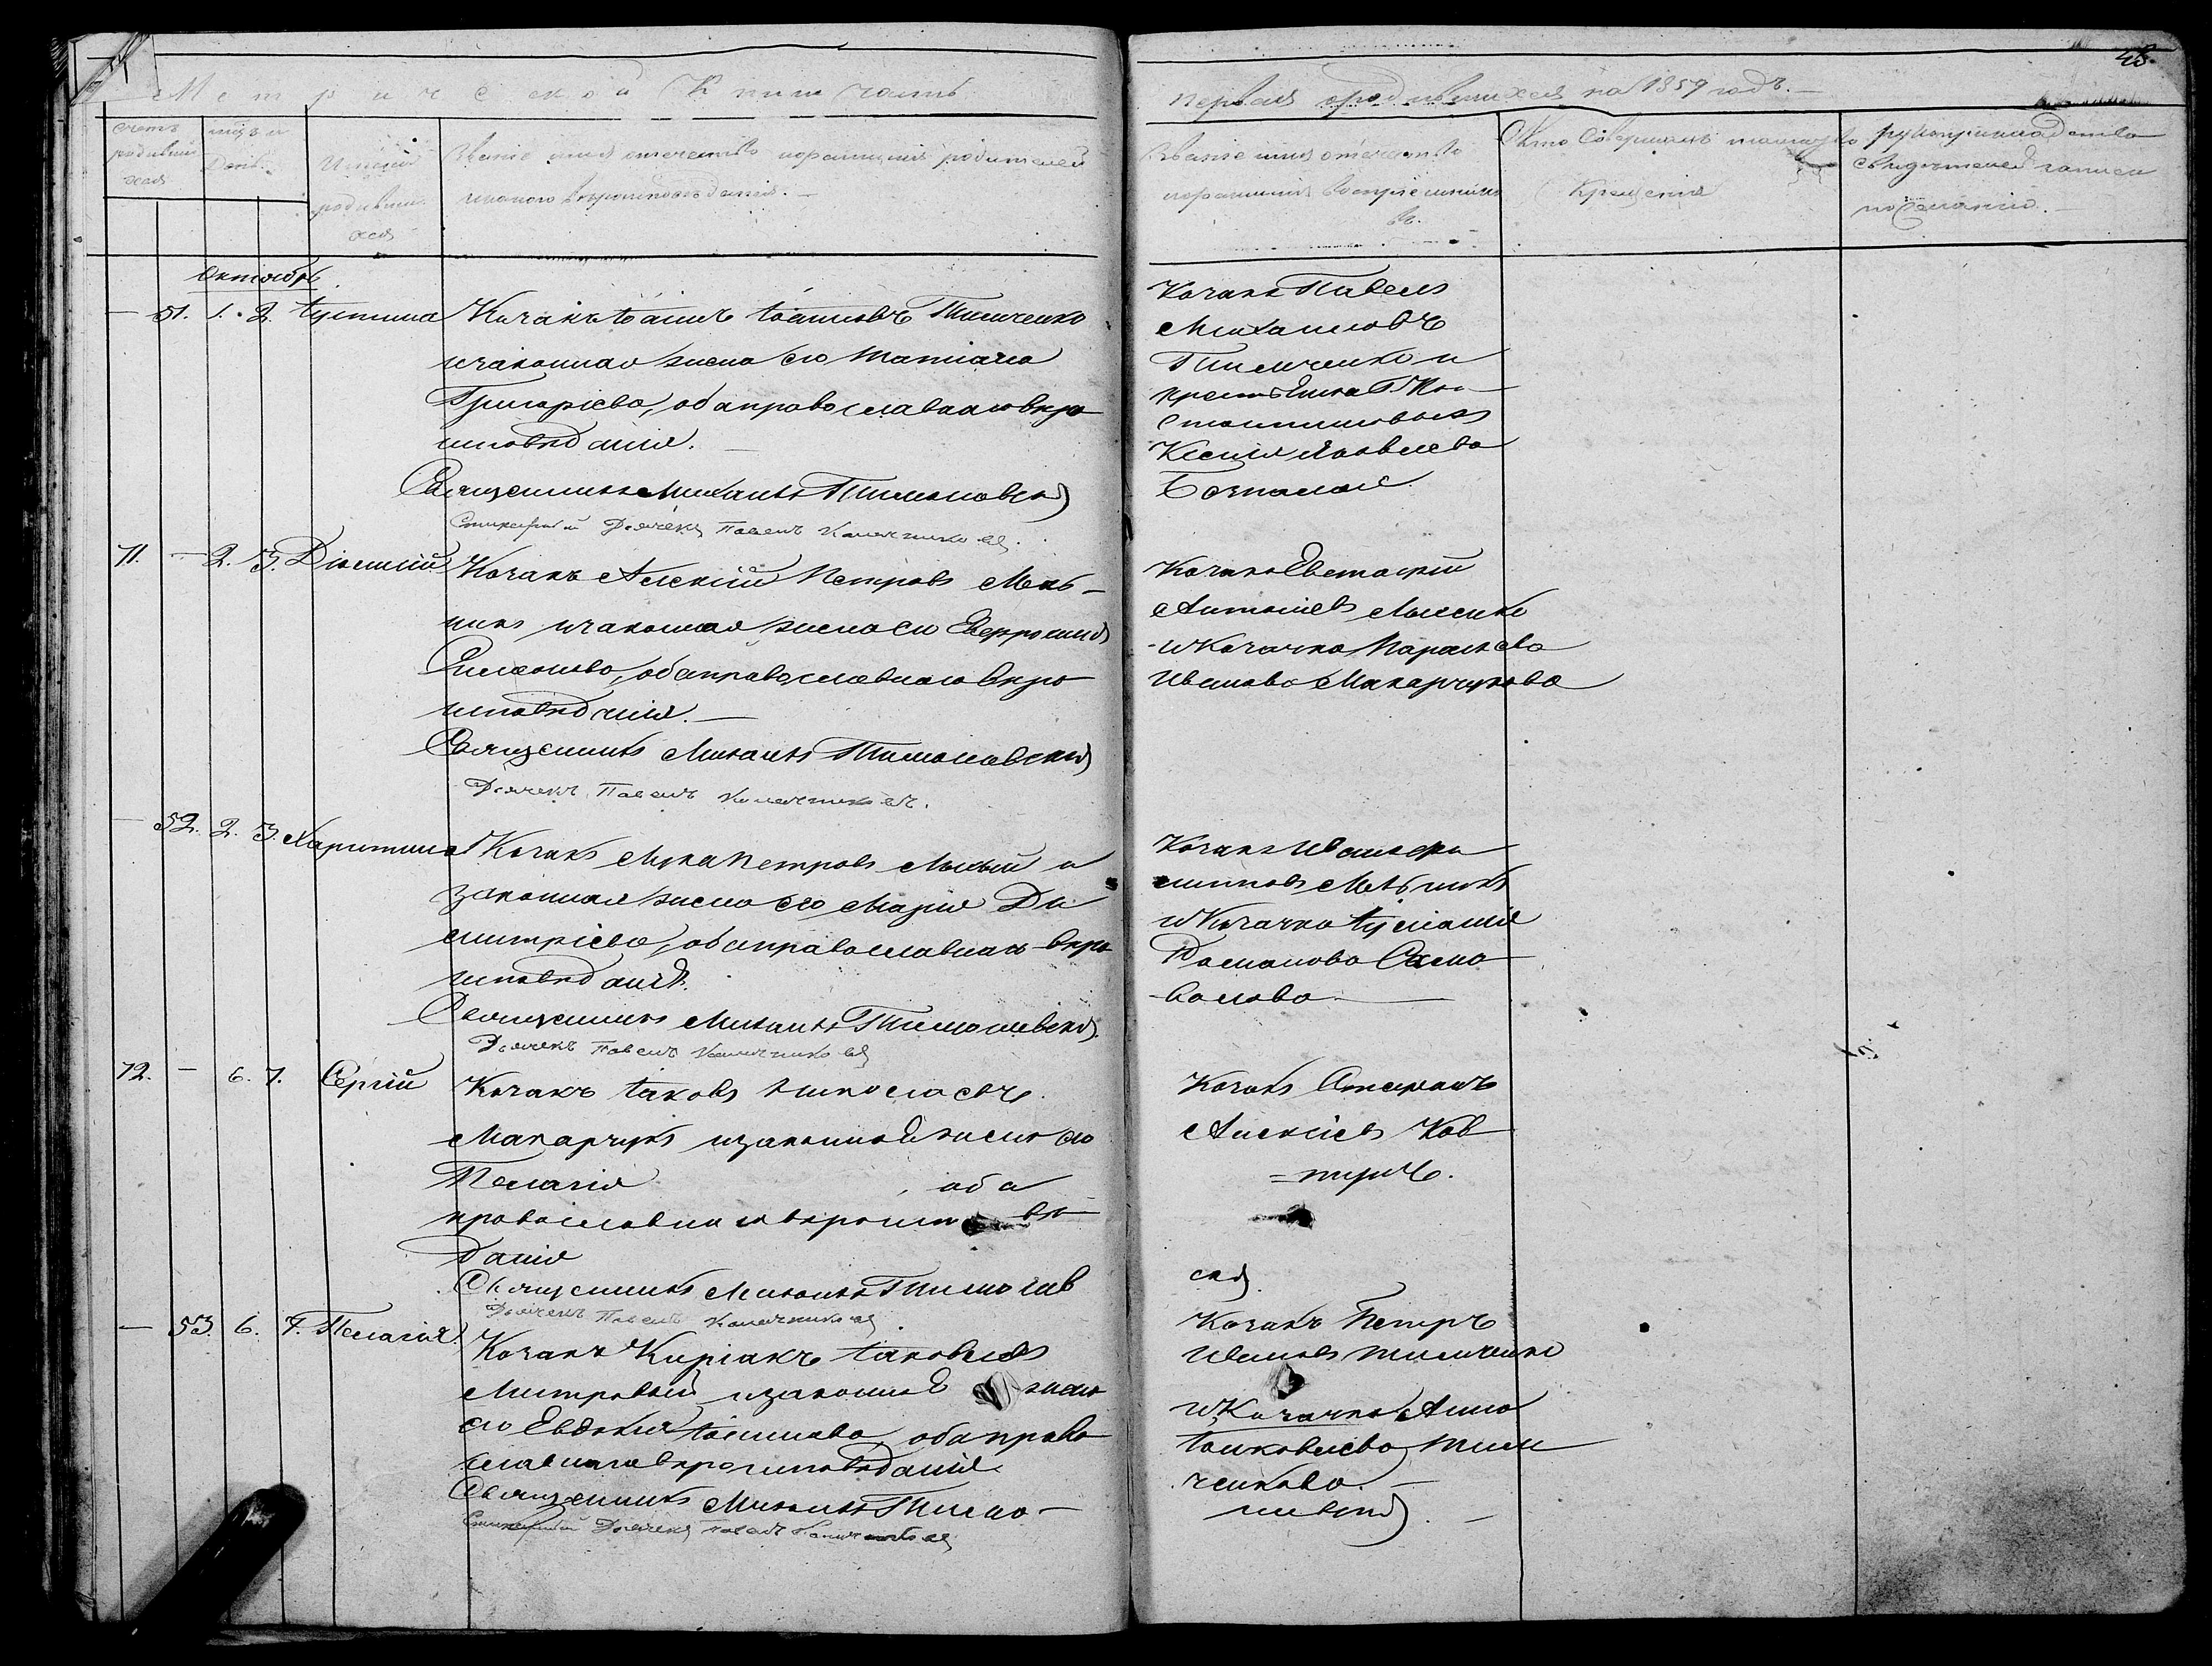 Метрической Книги часть
первая о родившихся на 1859 годъ.
48.
Счетъ родившихся
мѣсяцъ и день
Имена родившихся
Званіе имя отечество и фамилия родителей
и какого вѣроисповѣданія.
Званіе имя отечество
и фамилия воспріемниковъ.
Кто Совершалъ таинство
Крещенія
рукоприкладство
свидѣтелей записи
по желанію.
Октябрь
51. 1. 2. Іустина
Козакъ Іоаннъ Іоанновъ Тимченко
и законная жена его Татіана
Григоріева, оба православнаго вѣро
исповѣданія.
Священникъ Михаилъ Тимоновскій
Стихарный Дьячекъ Павелъ
Козакъ Павелъ
Михаиловъ
Тимченко и
Ксенія Яковлева
71. 2. 3. Діонисій
Козакъ Алексій Петровъ Мель-
никъ и законная жена его Евфросинія
Симеонова, оба православнаго вѣро
исповѣданія.
Священникъ Михаилъ Тимоновскій
Дьячекъ Павелъ
Козакъ Евстафій
Антоніевъ
и Козачка Параскева
Иванова Макарчукова
52. 2. 3. Харитина
Козакъ Лука Петровъ и
законная жена его Марія Ди
митріева, оба православнаго вѣро
исповѣданія.
Священникъ Михаилъ Тимоновскій
Дьячекъ Павелъ
Козакъ Иванъ
Мельникъ
и Козачка Іуліанія
Романова Само
валова
72. 6. 7. Сергій
Козакъ Іаковъ Николаевъ
Макарчукъ и законная жена его
Пелагія оба
православнаго вѣроисповѣ
данія
Священникъ Михаилъ Тимонов
скій
Дьячекъ Павелъ
Козакъ Стефанъ
Алексіевъ Ков
=
53. 6. 7. Пелагія
Козакъ Киріакъ Іаковлевъ
и законная жена
его Евдокія Іоаннова оба право
славнаго вѣроисповѣданія
Священникъ Михаилъ Тимо-
новскій
Стихарный Дьячекъ Павелъ
Козакъ Петръ
Ивановъ Тимченко
и Козачка Анна
Іаковлева Тим
ченкова.